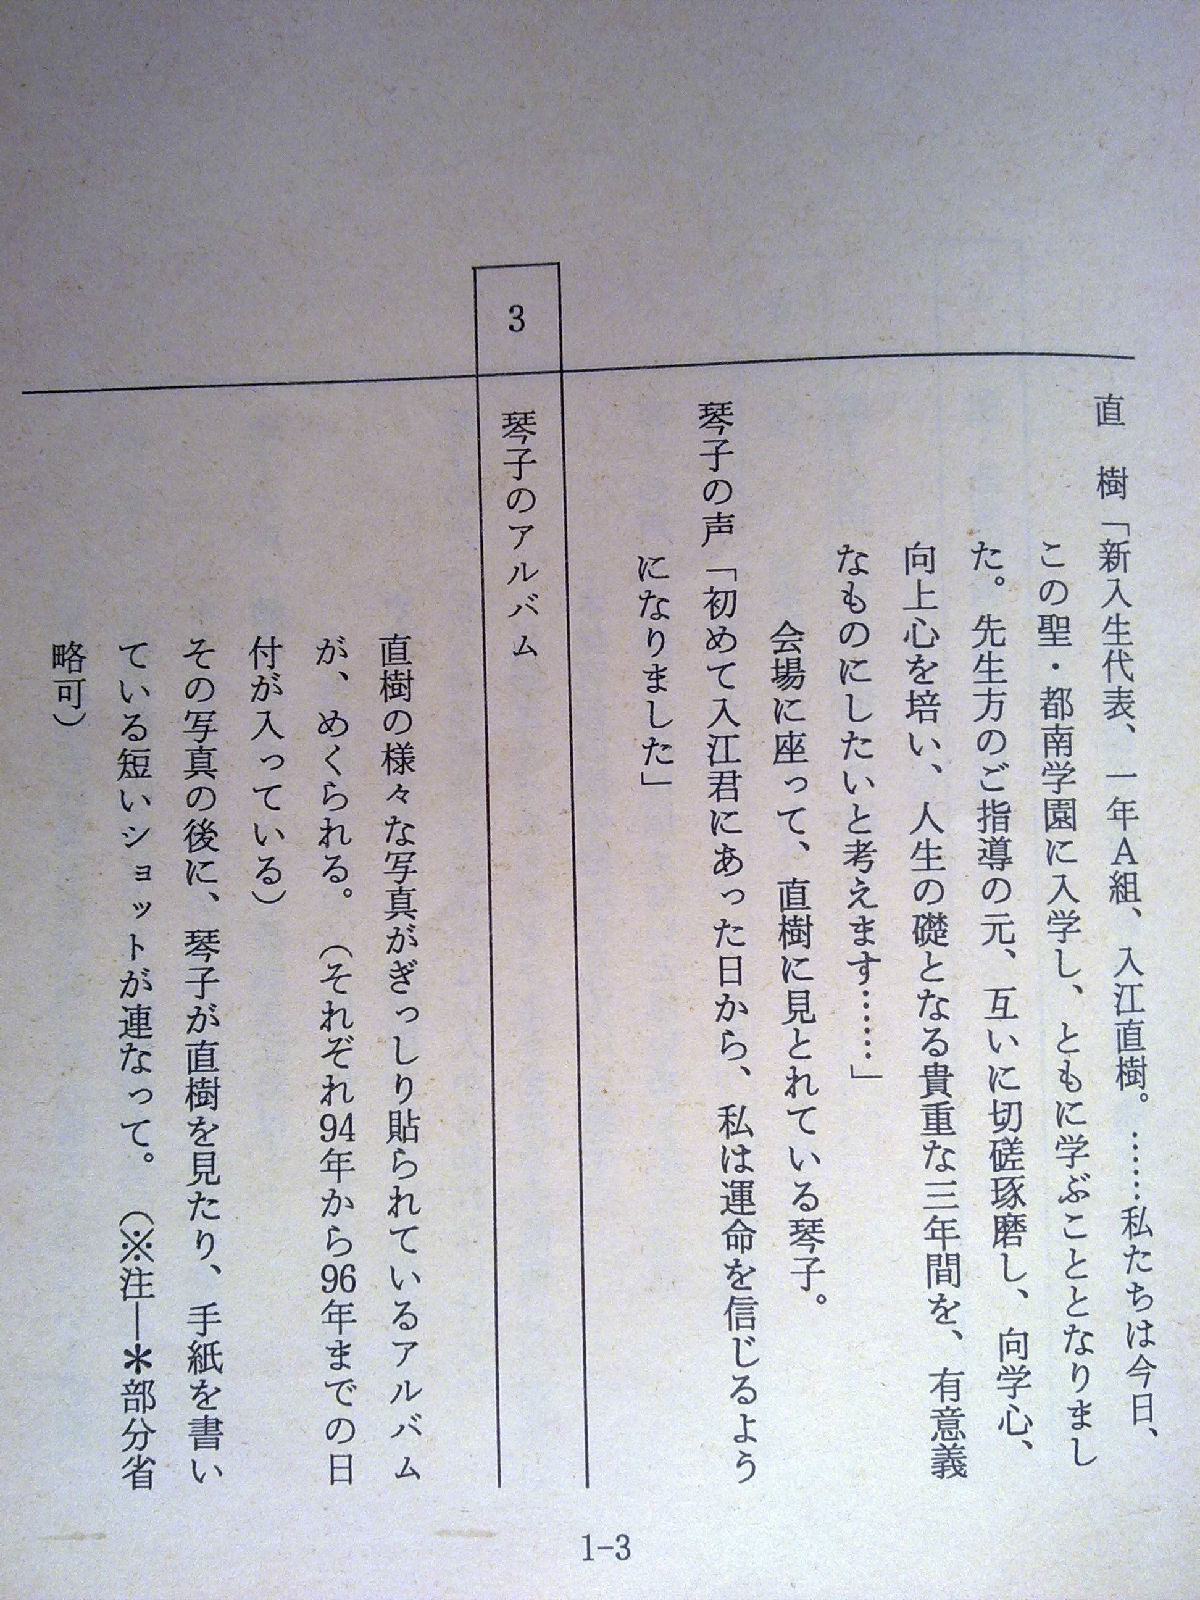 直　樹「新入生代表、一年Ａ組、入江直樹。……私たちは今日、
この聖・都南学園に入学し、ともに学ぶこととなりまし
た。先生方のご指導の元、互いに切磋琢磨し、向学心、
向上心を培い、人生の礎となる貴重な三年間を、有意義
なものにしたいと考えます……」
会場に座って、直樹に見とれている琴子。
琴子の声「初めて入江君にあった日から、私は運命を信じるよう
になりました」
3　琴子のアルバム
直樹の様々な写真がぎっしり貼られているアルバム
が、めくられる。（それぞれ94年から96年までの日
付が入っている）
その写真の後に、琴子が直樹を見たり、手紙を書い
ている短いショットが連なって。（※注―＊部分省
略可）
1-3